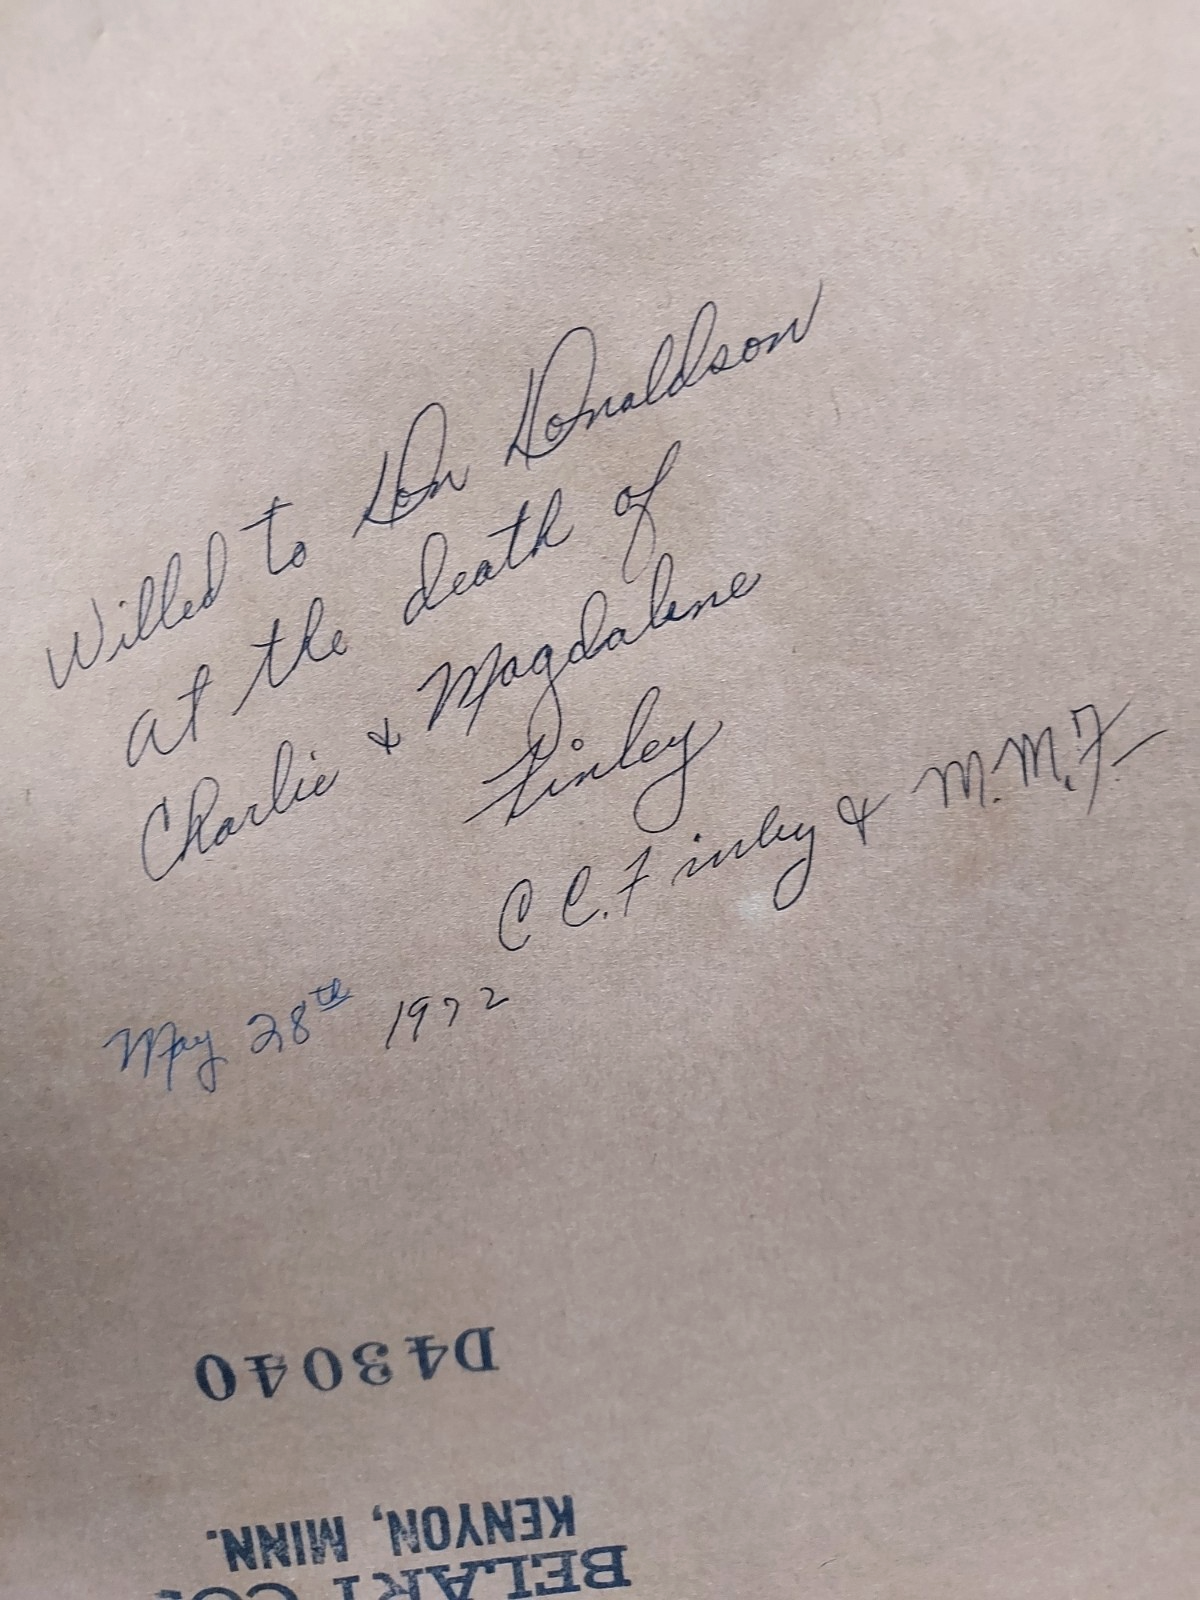 Willed to Don Donaldson
at the death of
Charlie & Magdalene
Finley
C C. Finley & M.M.F.
May 28th 1972
D43040
KENYON, MINN.
BELART CO.